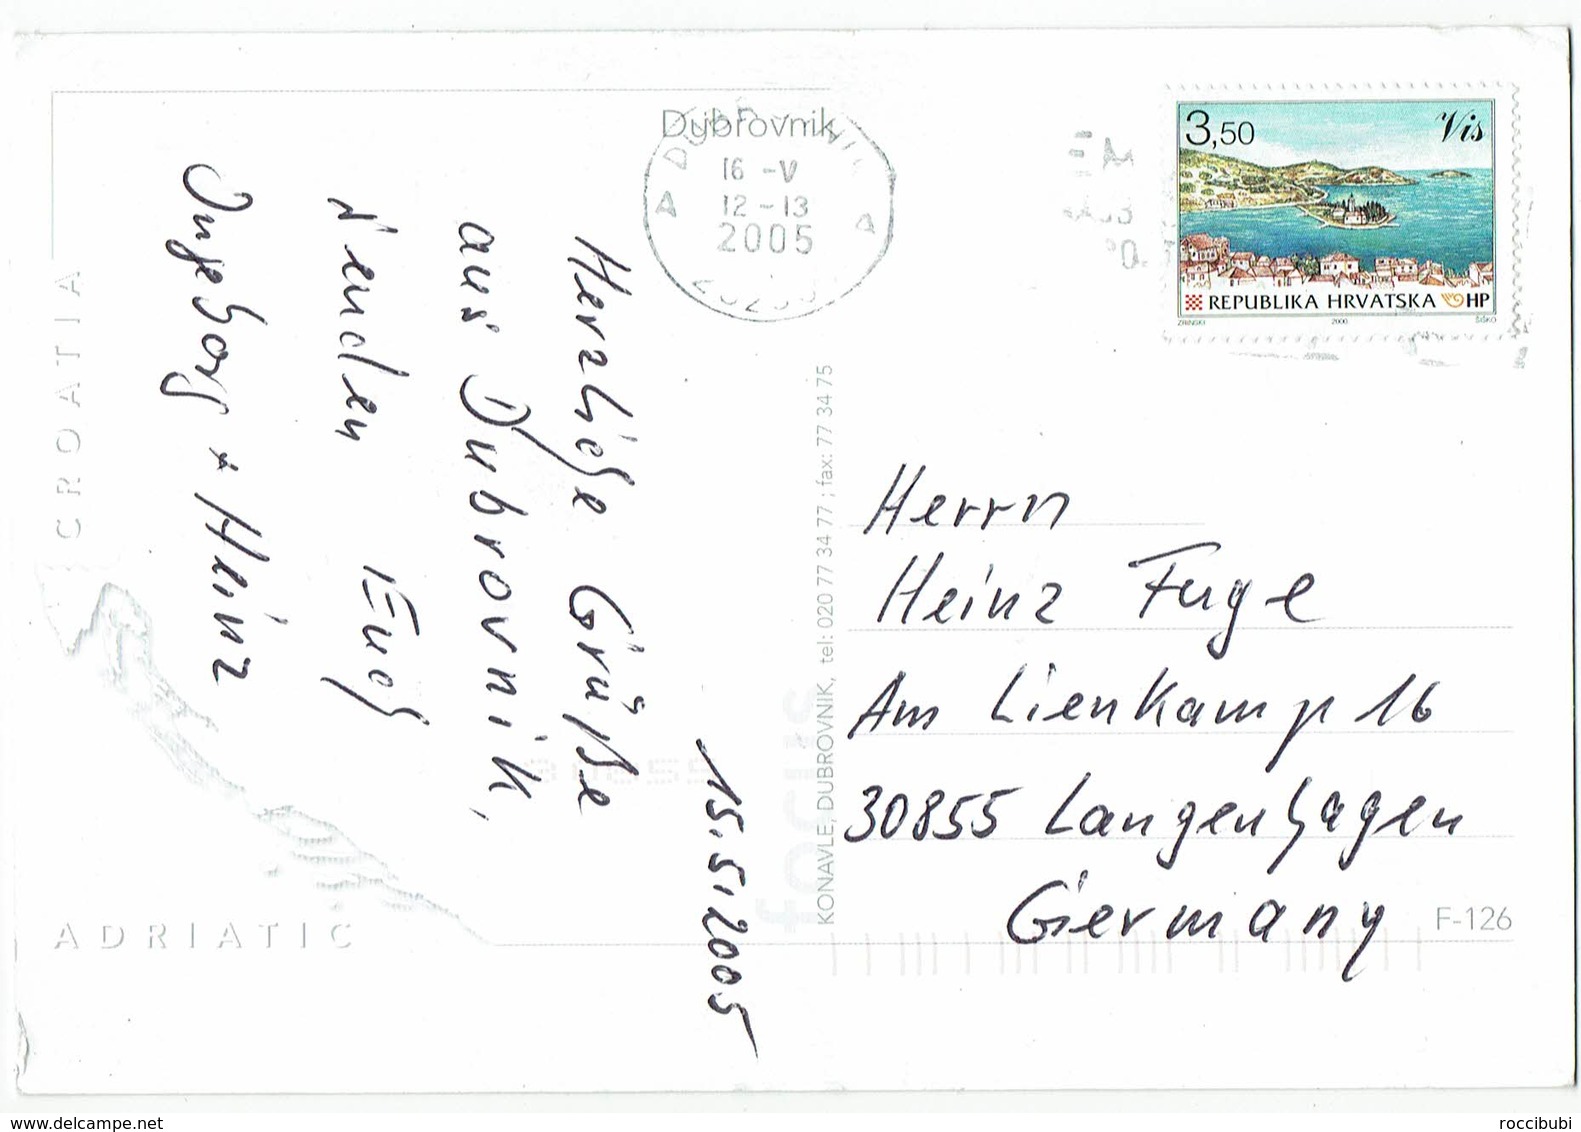 Dubrovnik
16 -V
12-13
2005
3,50
Vis
REPUBLIKA HRVATSKA HP
ZRINSKI 2000 ŠIŠKO
CROATIA
ADRIATIC
15.5.2005
Herzliche Grüße
aus Dubrovnik,
senden Euch
Ingeborg + Heinz
focus
KONAVLE, DUBROVNIK, tel: 020 77 34 77 ; fax: 77 34 75
Herrn
Heinz Fuge
Am Lienkamp 16
30855 Langenhagen
Germany
F-126
delcampe.net
roccibubi